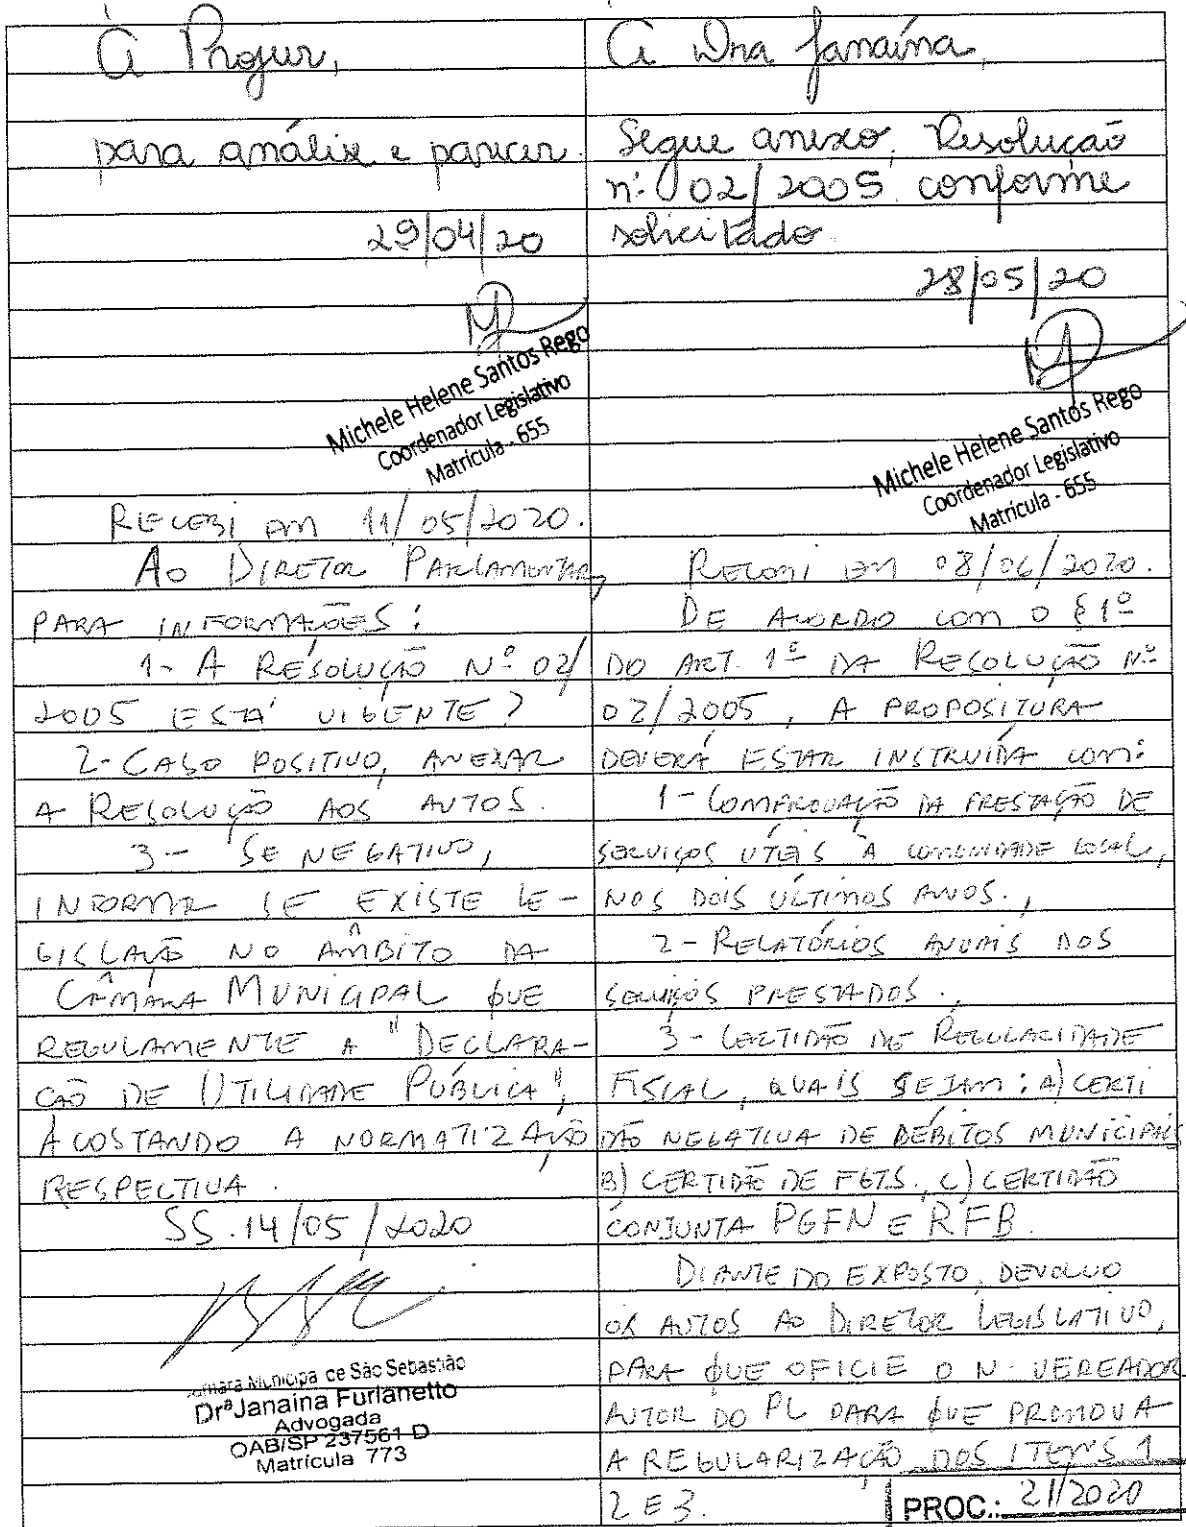 À Projur,
para análise e parecer.
29/04/20
Michele Helene Santos Rego
Coordenador Legislativo
Matrícula - 655
RECEBI EM 11/05/2020.
AO DIRETOR PARLAMENTAR,
PARA INFORMAÇÕES:
1- A RESOLUÇÃO Nº 02/
2005 ESTÁ VIGENTE?
2- CASO POSITIVO, ANEXAR
A RESOLUÇÃO AOS AUTOS.
3- SE NEGATIVO,
INFORMAR SE EXISTE LE-
GISLAÇÃO NO ÂMBITO DA
CÂMARA MUNICIPAL QUE
REGULAMENTE A "DECLARA-
ÇÃO DE UTILIDADE PÚBLICA",
ACOSTANDO A NORMATIZAÇÃO
RESPECTIVA.
SS. 14/05/2020
Câmara Municipal de São Sebastião
Drª Janaina Furlanetto
Advogada
OAB/SP 237561 D
Matrícula 773
À Dra Janaína,
Segue anexo, Resolução
nº 02/2005, conforme
solicitado.
28/05/20
Michele Helene Santos Rego
Coordenador Legislativo
Matrícula - 655
RECEBI EM 08/06/2020.
DE ACORDO COM O § 1º
DO ART. 1º DA RESOLUÇÃO Nº
02/2005, A PROPOSITURA
DEVERÁ ESTAR INSTRUÍDA COM:
1- COMPROVAÇÃO DA PRESTAÇÃO DE
SERVIÇOS ÚTEIS À COMUNIDADE LOCAL,
NOS DOIS ÚLTIMOS ANOS.,
2- RELATÓRIOS ANUAIS DOS
SERVIÇOS PRESTADOS.,
3- CERTIDÃO DE REGULARIDADE
FISCAL, QUAIS SEJAM: A) CERTI
DÃO NEGATIVA DE DÉBITOS MUNICIPAIS
B) CERTIDÃO DE FGTS., C) CERTIDÃO
CONJUNTA PGFN E RFB.
DIANTE DO EXPOSTO, DEVOLVO
OS AUTOS AO DIRETOR LEGISLATIVO,
PARA QUE OFICIE O N. VEREADOR
AUTOR DO PL PARA QUE PROMOVA
A REGULARIZAÇÃO DOS ITENS 1
2 E 3.
PROC.: 21/2020